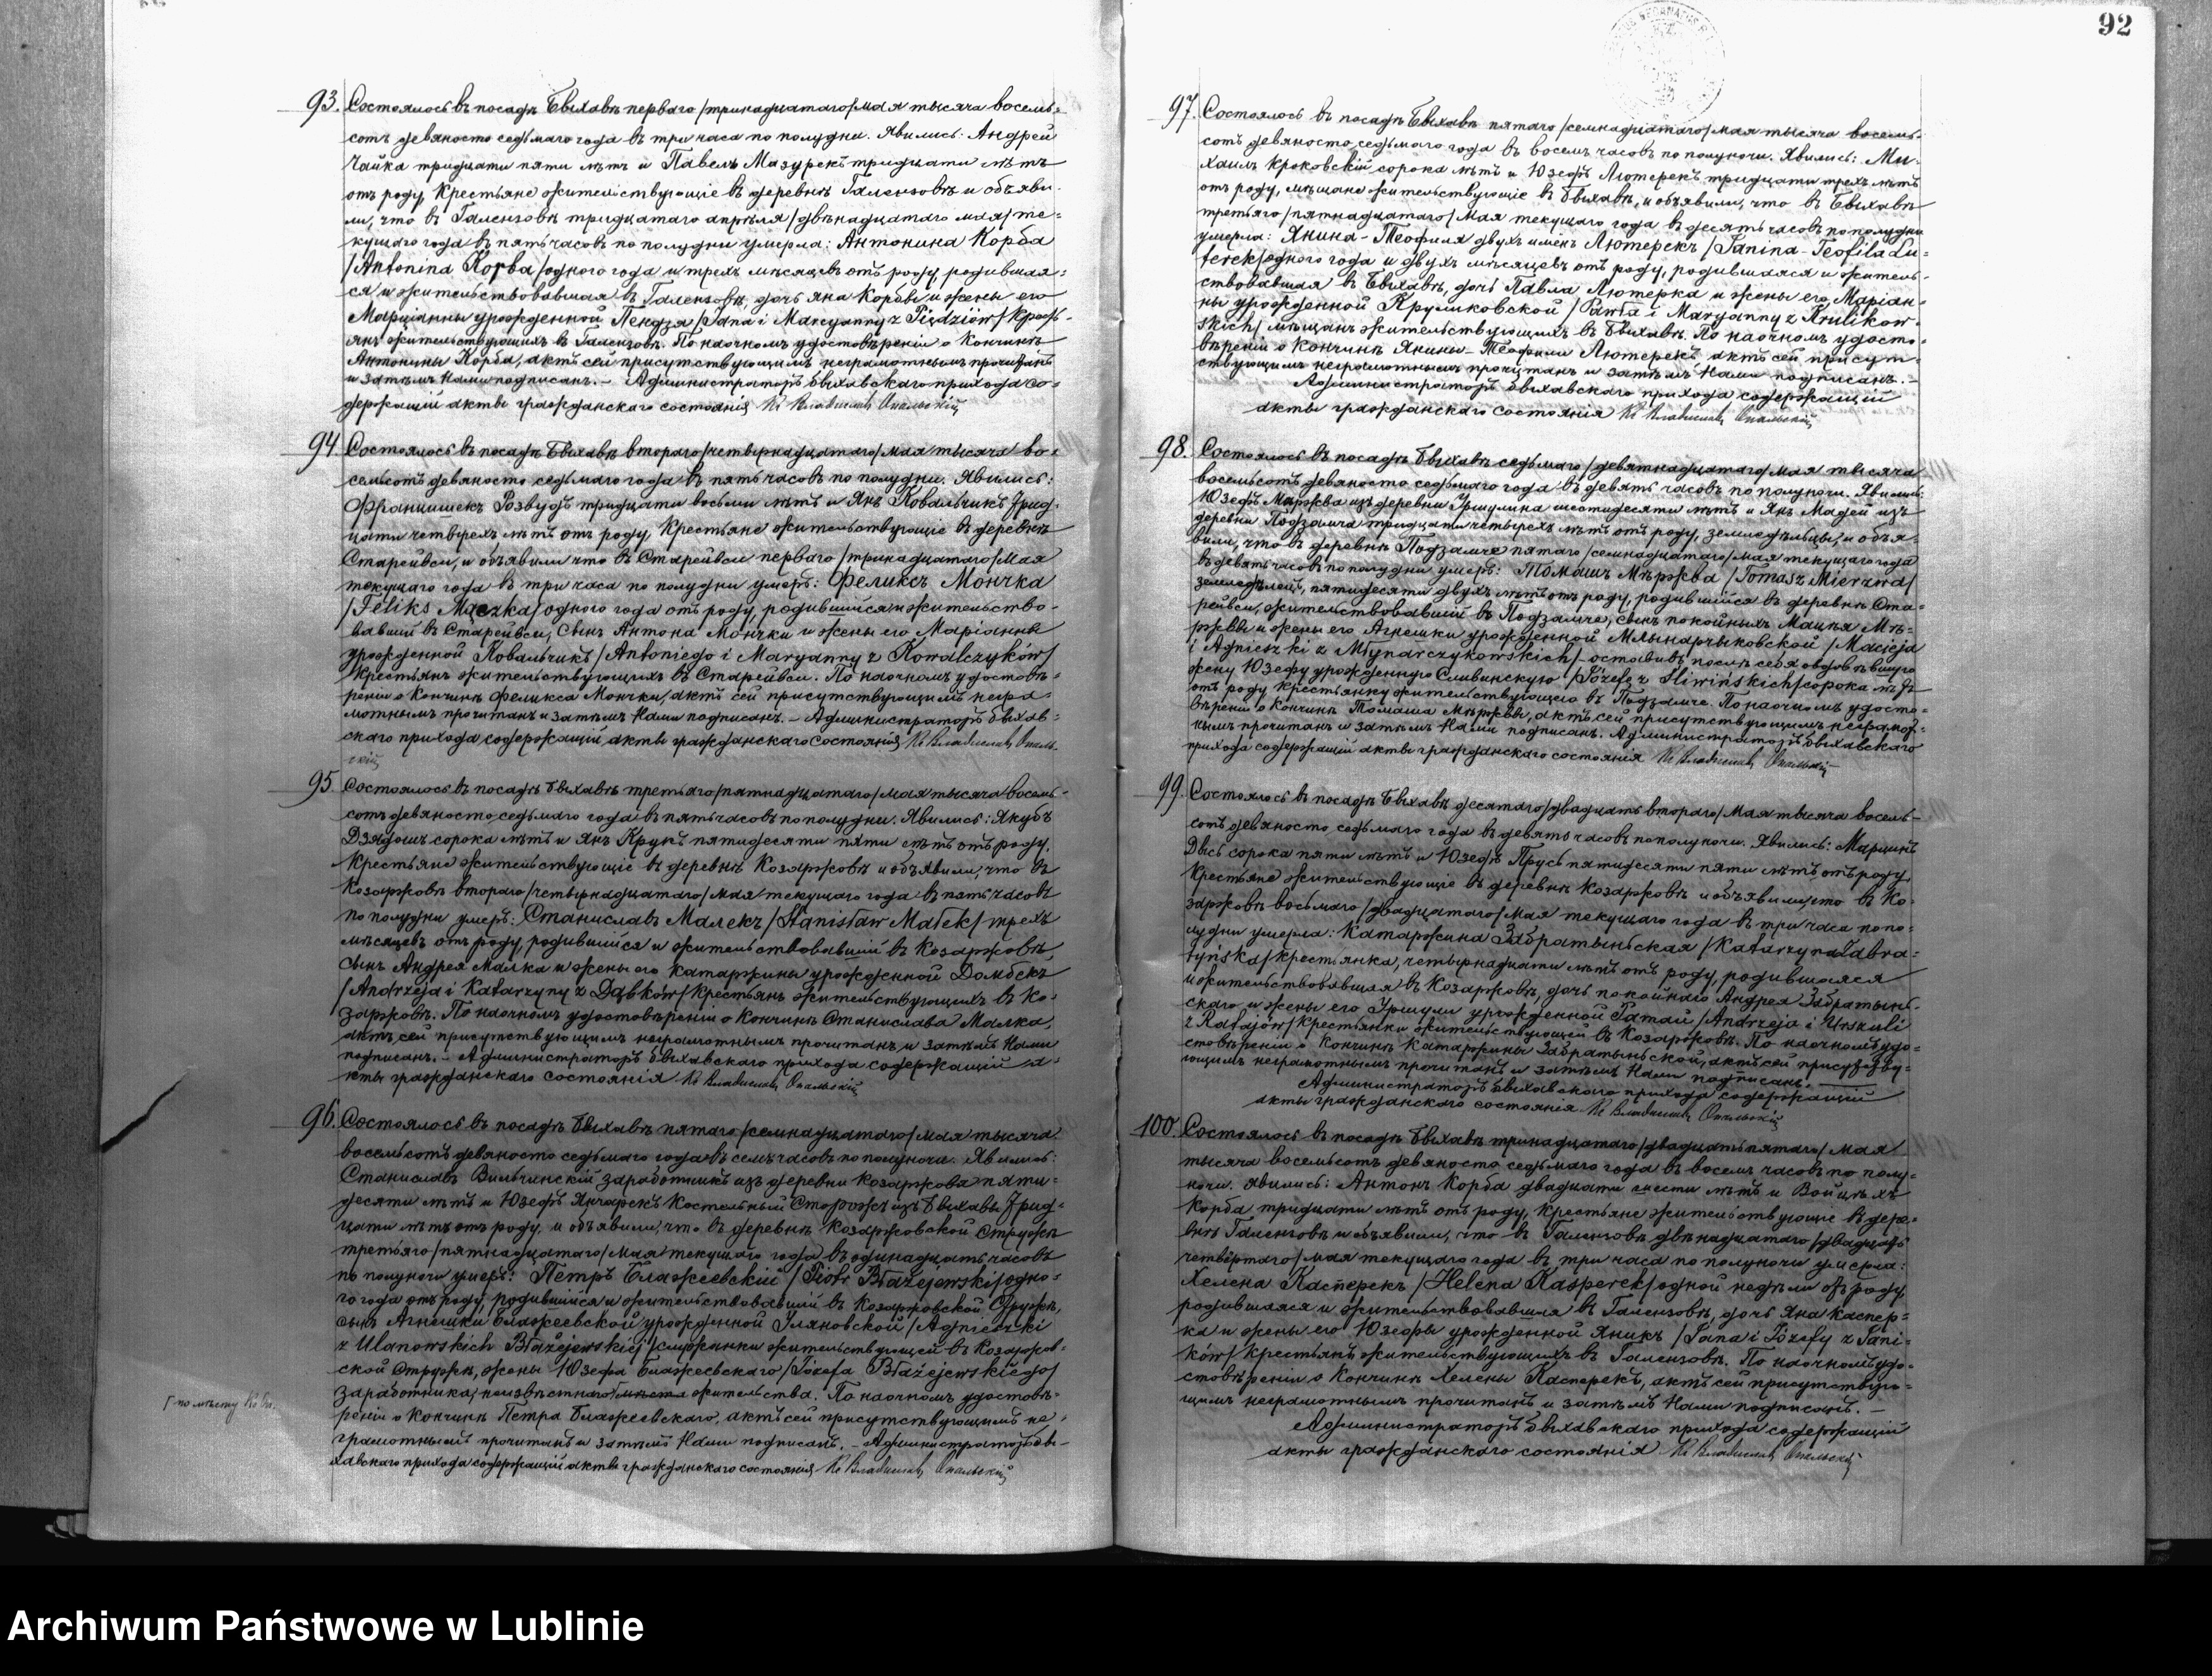 92
93. Состоялось въ посадѣ Быхавѣ перваго /тринадцатаго/ мая тысяча восемь-
сотъ девяносто седьмаго года въ три часа по полудни. Явились: Андрей
Чайка тридцати пяти лѣтъ и Павелъ Мазурекъ тридцати лѣтъ
отъ роду, крестьяне жительствующіе въ деревнѣ Галензовѣ и объяви-
ли, что въ Галензовѣ тридцатаго апрѣля /двѣнадцатаго мая/ те-
кущаго года въ пять часовъ по полудни умерла: Антонина Корба
/Antonina Korba/ одного года и трехъ мѣсяцевъ отъ роду, родившая-
ся и жительствовавшая въ Галензовѣ, дочь Яна Корбы и жены его
Марціанны урожденной Пендзя /Jana i Marcyanny z Piędziów/ кресть-
янъ жительствующихъ въ Галензовѣ. По наочномъ удостовѣреніи о кончинѣ
Антонины Корба, актъ сей присутствующимъ неграмотнымъ прочитанъ
и затѣмъ Нами подписанъ. – Администраторъ быхавскаго прихода со-
держащій акты гражданскаго состоянія Кс Владиславъ Опальскій
94. Состоялось въ посадѣ Быхавѣ втораго /четырнадцатаго/ мая тысяча во-
семьсотъ девяносто седьмаго года въ пять часовъ по полудни. Явились:
Францишекъ Розвудъ тридцати восьми лѣтъ и Янъ Ковальчикъ трид-
цати четырехъ лѣтъ отъ роду, крестьяне жительствующіе въ деревнѣ
Старейвси, и объявили что въ Старейвси перваго /тринадцатаго/ мая
текущаго года въ три часа по полудни умеръ: Феликсъ Мончка
/Feliks Mączka/ одного года отъ роду, родившійся и жительство-
вавшій въ Старейвси, сынъ Антона Мончки и жены его Маріанны
урожденной Ковальчикъ /Antoniego i Maryanny z Kowalczyków/
крестьянъ жительствующихъ въ Старейвси. По наочномъ удостовѣ-
реніи о кончинѣ Феликса Мончки, актъ сей присутствующимъ негра-
мотнымъ прочитанъ и затѣмъ Нами подписанъ. – Администраторъ быхав-
скаго прихода содержащій акты гражданскаго состоянія Кс Владиславъ Опаль-
скій
95 Состоялось въ посадѣ Быхавѣ третьяго /пятнадцатаго/ мая тысяча восемь-
сотъ девяносто седьмаго года въ пять часовъ по полудни. Явились: Якубъ
Дзядошъ сорока лѣтъ и Янъ Крукъ пятидесяти пяти лѣтъ отъ роду,
крестьяне жительствующіе въ деревнѣ Козаржовѣ и объявили, что въ
Козаржовѣ втораго /четырнадцатаго/ мая текущаго года въ пять часовъ
по полудни умеръ: Станиславъ Малекъ /Stanisław Małek/ трехъ
мѣсяцевъ отъ роду, родившійся и жительствовавшій въ Козаржовѣ,
сынъ Андрея Малка и жены его Катаржины урожденной Домбекъ
/Andrzeja i Katarzyny z Dąbków/ крестьянъ жительствующихъ въ Ко-
заржовѣ. По наочномъ удостовѣреніи о кончинѣ Станислава Малка,
актъ сей присутствующимъ неграмотнымъ прочитанъ и затѣмъ Нами
подписанъ. – Администраторъ быхавскаго прихода содержащій а-
кты гражданскаго состоянія Кс Владиславъ Опальскій
96. Состоялось въ посадѣ Быхавѣ пятаго /семнадцатаго/ мая тысяча
восемьсотъ девяносто седьмаго года въ семь часовъ по полуночи. Явились:
Станиславъ Вильчинскій заработникъ изъ деревни Козаржова пяти-
десяти лѣтъ и Юзефъ Янчарекъ костельный сторожъ изъ Быхавы трид-
цати лѣтъ отъ роду, и объявили, что въ деревнѣ Козаржовской Стружѣ
третьяго /пятнадцатаго/ мая текущаго года въ одинадцать часовъ
по полуночи умеръ: Петръ Блажеевскій /Piotr Błażejewski/ одно-
го года отъ роду, родившійся и жительствовавшій въ Козаржовской Стружѣ,
сынъ Агнешки Блажеевской урожденной Уляновской /Agnieszki
z Ulanowskich Błażejewskiej/ служанки жительствующей въ Козаржов-
ской Стружѣ, жены Юзефа Блажеевскаго /Józefa Błażejewskiego/
заработника, неизвѣстнаго мѣста жительства. По наочномъ удостовѣ-
реніи о кончинѣ Петра Блажеевскаго, актъ сей присутствующимъ не-
грамотнымъ прочитанъ и затѣмъ Нами подписанъ. – Администраторъ бы-
хавскаго прихода содержащій акты гражданскаго состоянія Кс Владиславъ Опальскій
по мѣсту
97. Состоялось въ посадѣ Быхавѣ пятаго /семнадцатаго/ мая тысяча восемь-
сотъ девяносто седьмаго года въ восемь часовъ по полуночи. Явились: Ми-
хаилъ Кроковскій сорока лѣтъ и Юзефъ Лютерекъ тридцати трехъ лѣтъ
отъ роду, мѣщане жительствующіе въ Быхавѣ, и объявили, что въ Быхавѣ
третьяго /пятнадцатаго/ мая текущаго года въ десять часовъ по полудни
умерла: Янина-Теофиля двухъ именъ Лютерекъ /Janina-Teofila Lu-
terek/ одного года и двухъ мѣсяцевъ отъ роду, родившаяся и житель-
ствовавшая въ Быхавѣ, дочь Павла Лютерка и жены его Маріан-
ны урожденной Круликовской /Pawła i Maryanny z Krulikow-
skich/ мѣщанъ жительствующихъ въ Быхавѣ. По наочномъ удосто-
вѣреніи о кончинѣ Янины-Теофили Лютерекъ, актъ сей присут-
ствующимъ неграмотнымъ прочитанъ и затѣмъ Нами подписанъ. –
Администраторъ быхавскаго прихода содержащій
акты гражданскаго состоянія Кс Владиславъ Опальскій
98. Состоялось въ посадѣ Быхавѣ седьмаго /девятнадцатаго/ мая тысяча
восемьсотъ девяносто седьмаго года въ девять часовъ по полуночи. Явились:
Юзефъ Мержва изъ деревни Уршулина шестидесяти лѣтъ и Янъ Мадей изъ
деревни Подзамча тридцати четырехъ лѣтъ отъ роду, земледѣльцы, и объя-
вили, что въ деревнѣ Подзамче пятаго /семнадцатаго/ мая текущаго года
въ девять часовъ по полудни умеръ: Томашъ Мѣржва /Tomasz Mierzwa/
земледѣлецъ, пятидесяти двухъ лѣтъ отъ роду, родившійся въ деревнѣ Ста-
рейвси, жительствовавшій въ Подзамче, сынъ покойныхъ Мацѣя Мѣ-
ржвы и жены его Агнешки урожденной Млынарчыковской /Macieja
i Agnieszki z Młynarczykowskich/ – оставивъ послѣ себя овдовѣвшую
жену Юзефу урожденную Сливинскую /Józefę z Śliwińskich/ сорока лѣтъ
отъ роду крестьянку жительствующею въ Подзамче. По наочномъ удосто-
вѣреніи о кончинѣ Томаша Мѣржвы, актъ сей присутствующимъ неграмот-
нымъ прочитанъ и затѣмъ Нами подписанъ. Администраторъ быхавскаго
прихода содержащій акты гражданскаго состоянія Кс Владиславъ Опальскій
99. Состоялось въ посадѣ Быхавѣ десятаго /двадцать втораго/ мая тысяча восемь-
сотъ девяносто седьмаго года въ девять часовъ по полуночи. Явились: Марцинъ
Дысь сорока пяти лѣтъ и Юзефъ Прусь пятидесяти пяти лѣтъ отъ роду,
крестьяне жительствующіе въ деревнѣ Козаржовѣ и объявили, что въ Ко-
заржовѣ восьмаго /двадцатаго/ мая текущаго года въ три часа по по-
лудни умерла: Катаржина Забратыньская /Katarzyna Zabra-
tyńska/ крестьянка, четырнадцати лѣтъ отъ роду, родившаяся
и жительствовавшая въ Козаржовѣ, дочь покойнаго Андрея Забратынь-
скаго и жены его Уршули урожденной Ратай /Andrzeja i Urszuli
z Ratajów/ крестьянки жительствующей въ Козаржовѣ. По наочномъ удо-
стовѣреніи о кончинѣ Катаржины Забратыньской, актъ сей присутству-
ющимъ неграмотнымъ прочитанъ и затѣмъ Нами подписанъ.
Администраторъ быхавскаго прихода содержащій
акты гражданскаго состоянія Кс Владиславъ Опальскій
100. Состоялось въ посадѣ Быхавѣ тринадцатаго /двадцать пятаго/ мая
тысяча восемьсотъ девяносто седьмаго года въ восемь часовъ по полу-
ночи. Явились: Антонъ Корба двадцати шести лѣтъ и Войцѣхъ
Корба тридцати лѣтъ отъ роду, крестьяне жительствующіе въ дере-
внѣ Галензовѣ и объявили, что въ Галензовѣ двѣнадцатаго /двадцать
четвертаго/ мая текущаго года въ три часа по полуночи умерла:
Хелена Касперекъ /Helena Kasperek/ одной недѣли отъ роду,
родившаяся и жительствовавшая въ Галензовѣ, дочь Яна Каспер-
ка и жены его Юзефы урожденной Яникъ /Jana i Józefy z Jani-
ków/ крестьянъ жительствующихъ въ Галензовѣ. По наочномъ удо-
стовѣреніи о кончинѣ Хелены Касперекъ, актъ сей присутствую-
щимъ неграмотнымъ прочитанъ и затѣмъ Нами подписанъ. –
Администраторъ быхавскаго прихода содержащій
акты гражданскаго состоянія Кс Владиславъ Опальскій
Archiwum Państwowe w Lublinie